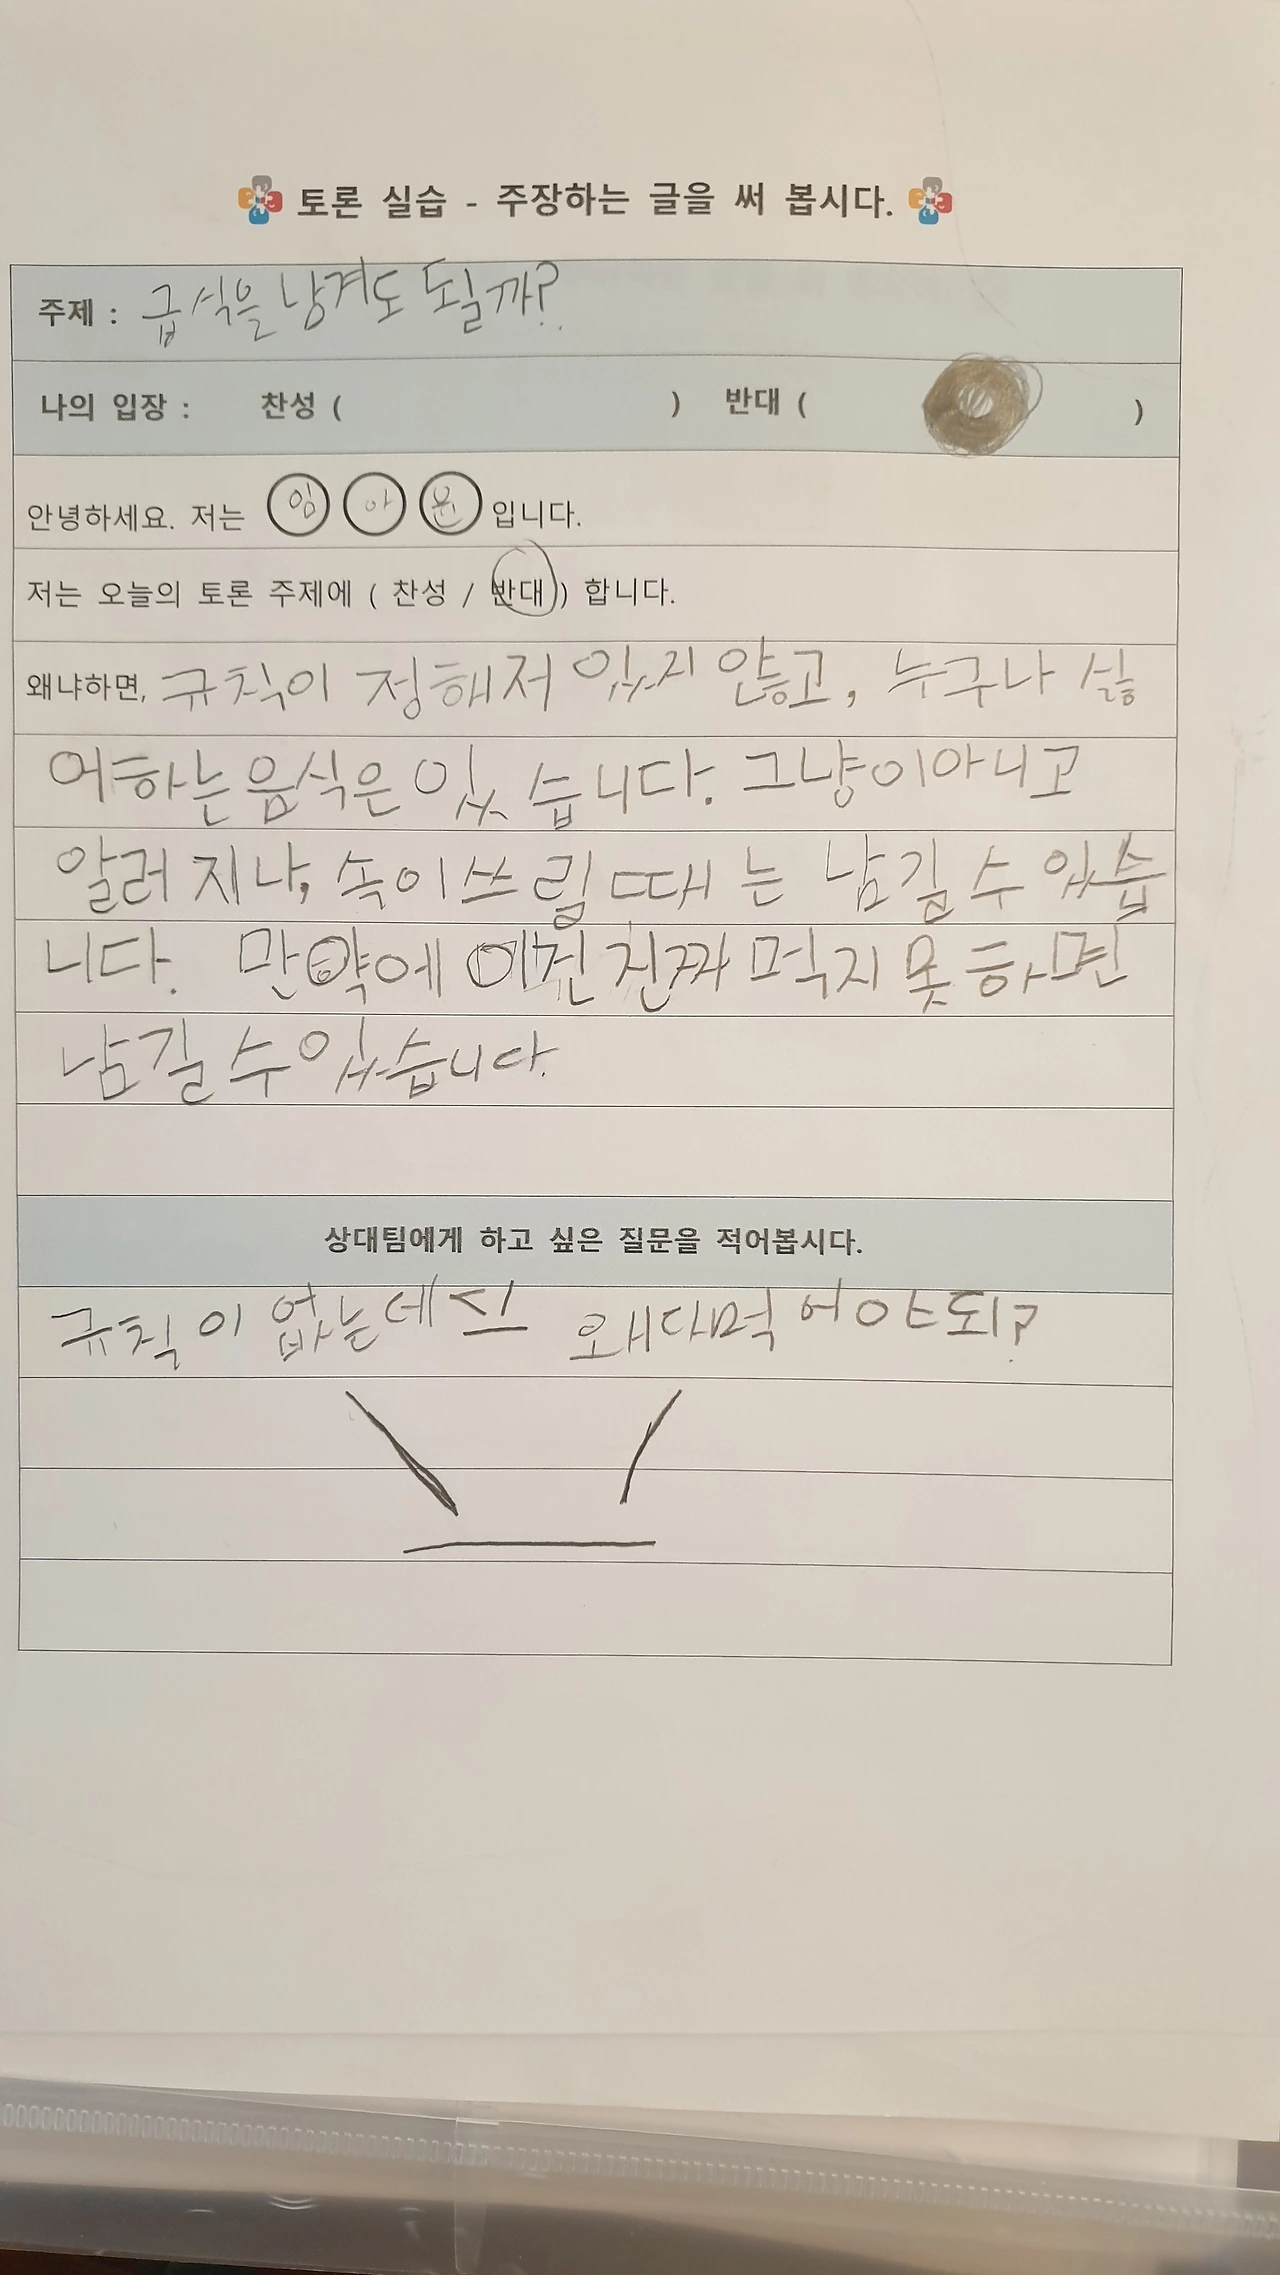 토론 실습 - 주장하는 글을 써 봅시다.
주제 : 급식을 남겨도 될까?
나의 입장 : 찬성 ( ) 반대 ( )
안녕하세요. 저는 임 아 윤 입니다.
저는 오늘의 토론 주제에 ( 찬성 / 반대 ) 합니다.
왜냐하면, 규칙이 정해저 있지 않고, 누구나 싫
어하는 음식은 있습니다. 그냥이아니고
알러지나, 속이쓰릴때는 남길 수 있습
니다. 만약에 이건 진짜 먹지 못하면
남길 수 있습니다.
상대팀에게 하고 싶은 질문을 적어봅시다.
규칙이 없는데 왜 다먹어야되?